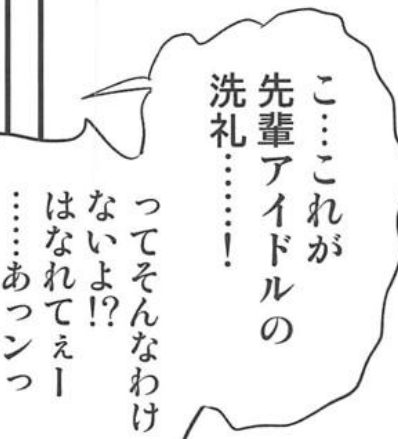 こ…これが
先輩アイドルの
洗礼……！
ってそんなわけ
ないよ!?
はなれてぇー
……あっンっ